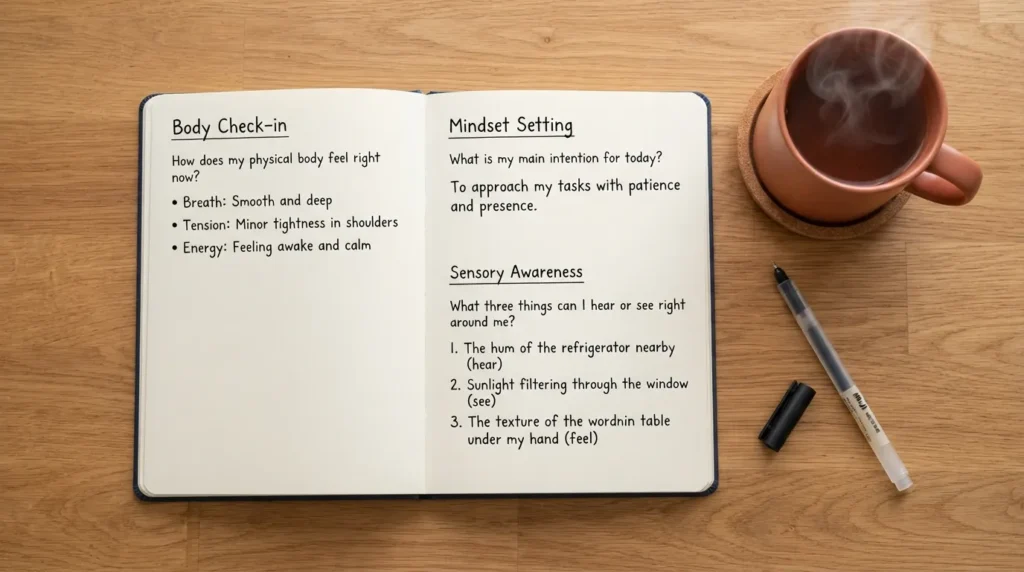 Body Check-in
How does my physical body feel right
now?
• Breath: Smooth and deep
• Tension: Minor tightness in shoulders
• Energy: Feeling awake and calm
Mindset Setting
What is my main intention for today?
To approach my tasks with patience
and presence.
Sensory Awareness
What three things can I hear or see right
around me?
1. The hum of the refrigerator nearby
(hear)
2. Sunlight filtering through the window
(see)
3. The texture of the wordnin table
under my hand (feel)